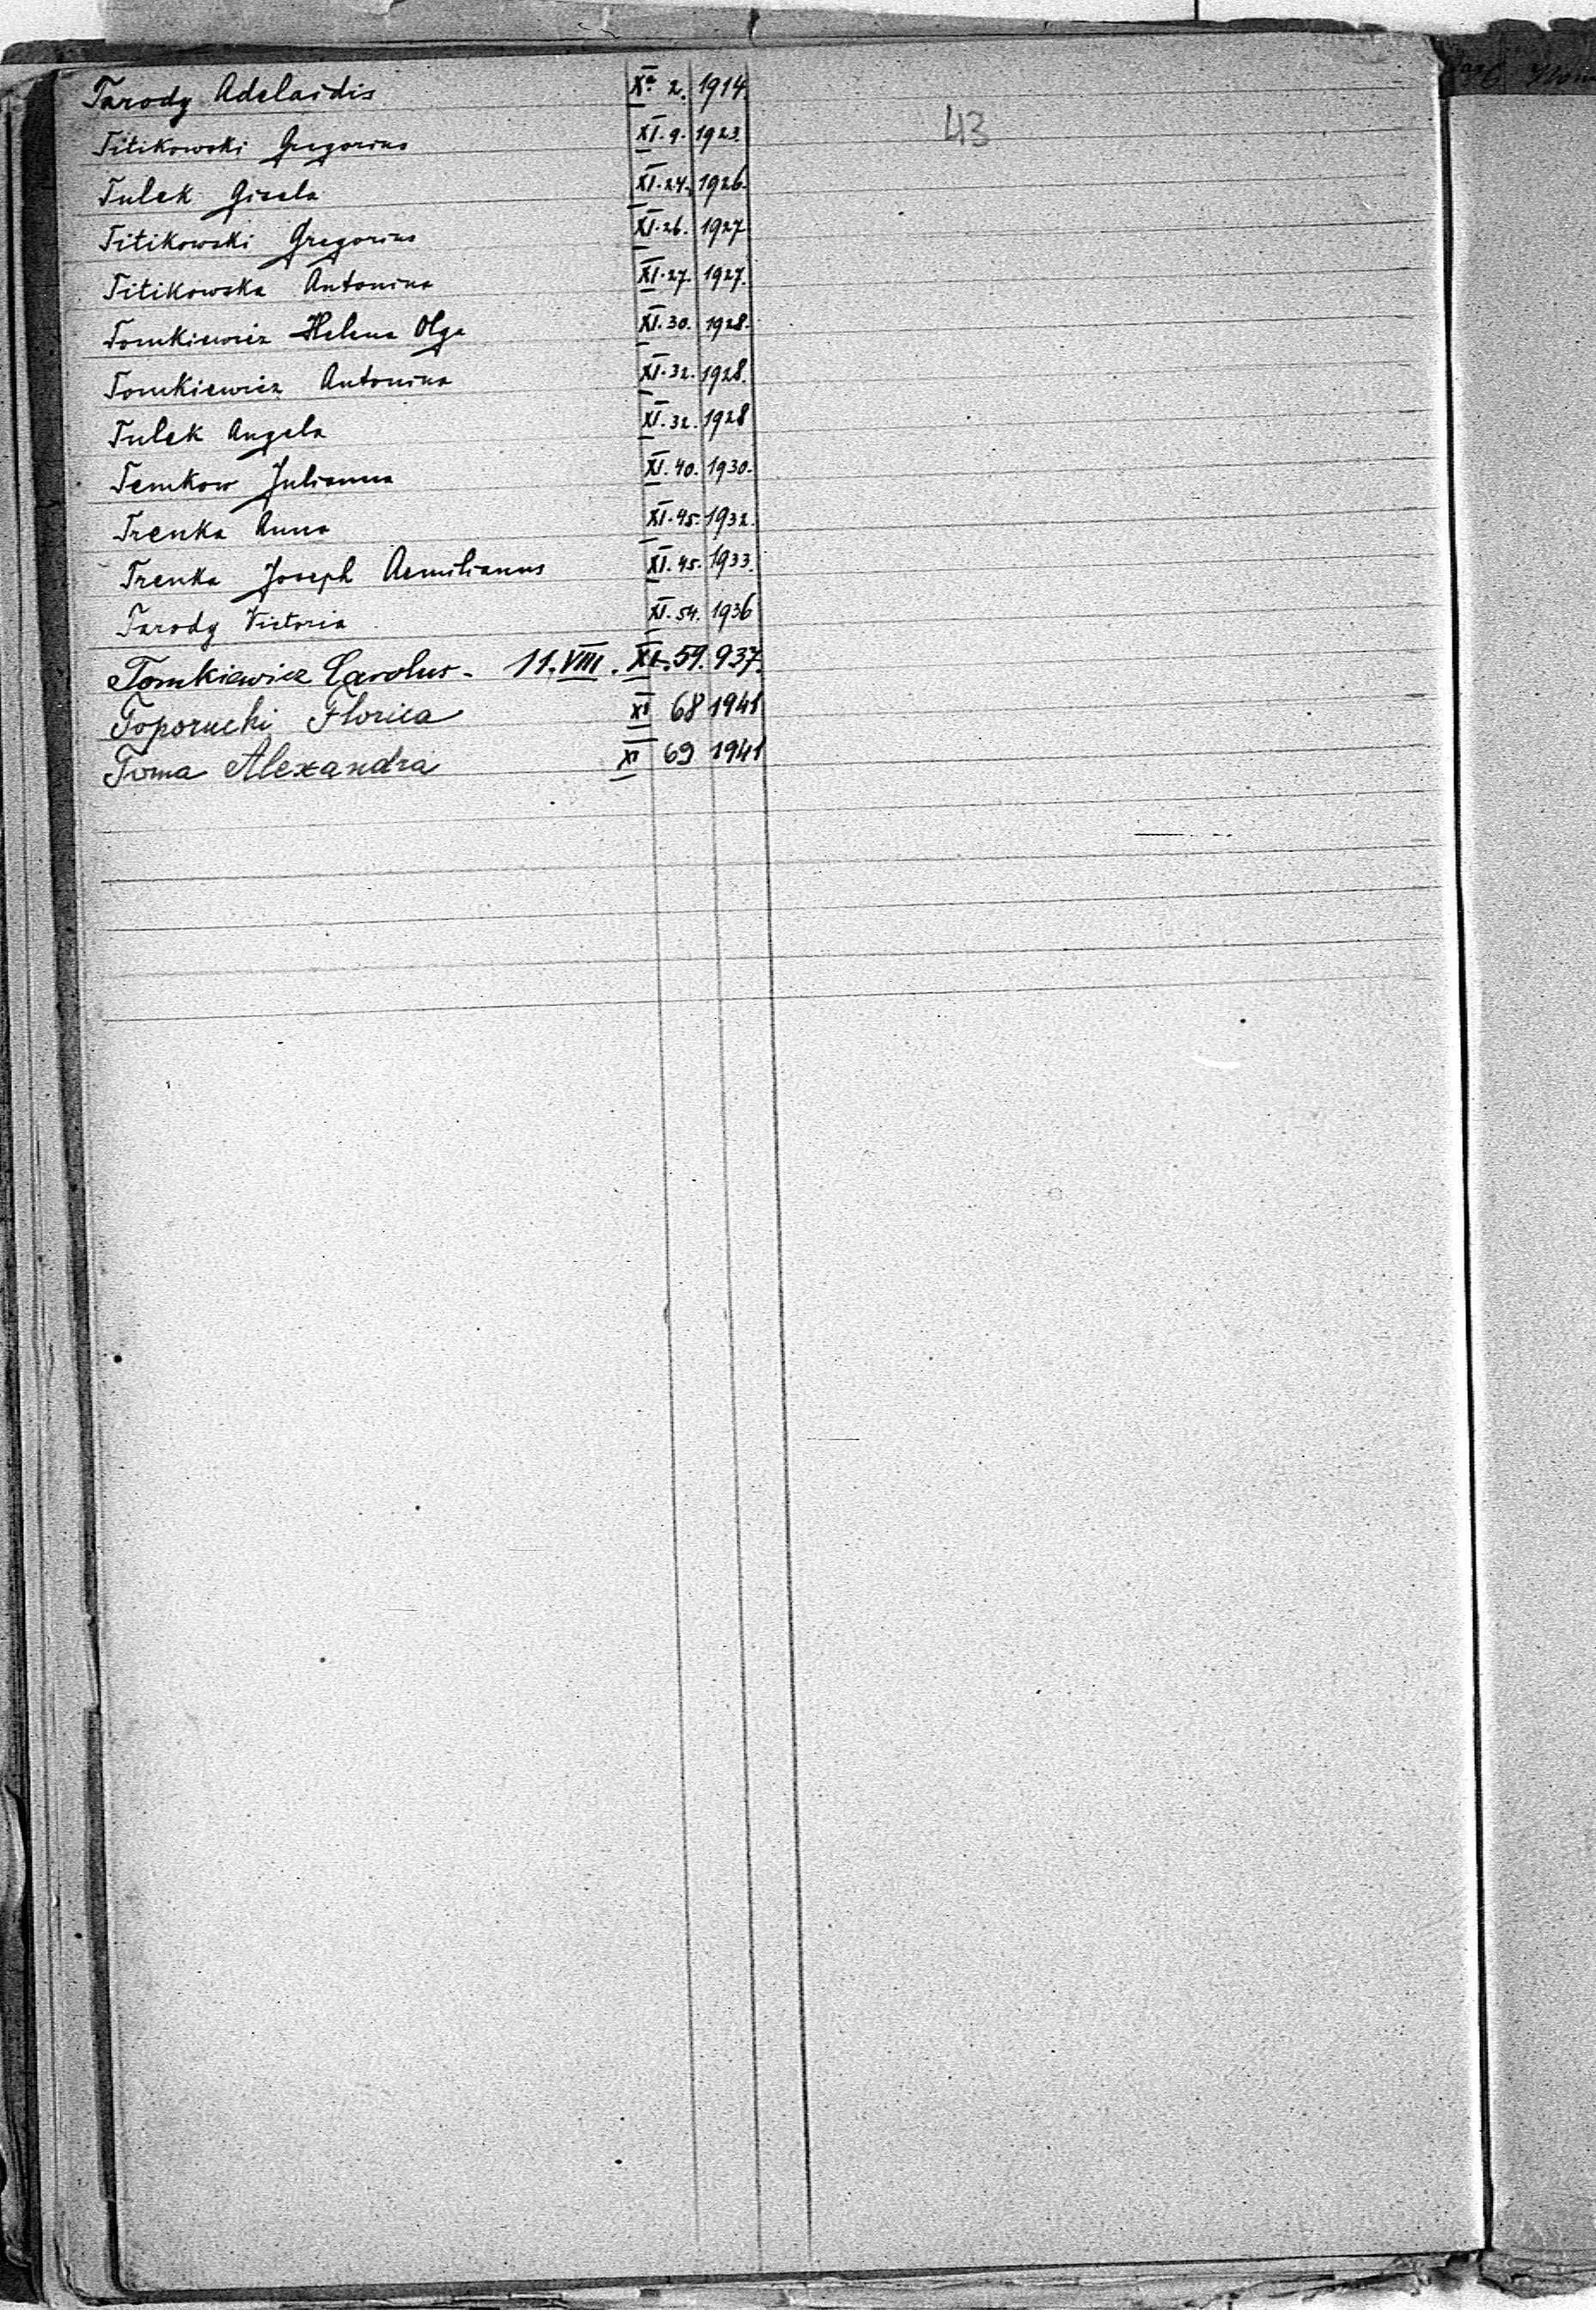 Tarody Adelaidis X.a 2. 1914.
43
Titikowski Gregorius XI. 9. 1923.
Tulek Gisela XI. 24. 1926.
Titikowski Gregorius XI. 26. 1927
Titikowska Antonina XI. 27. 1927.
Tomkiewicz Helena Olga XI. 30. 1928.
Tomkiewicz Antonina XI. 32. 1928.
Tulek Angela XI. 32. 1928
Temkow Julianna XI. 40. 1930.
Trenka Anna XI. 45. 1932.
Trenka Joseph Aemilianus XI. 45. 1933.
Tarody Victoria XI. 54. 1936
Tomkiewicz Carolus - 11. VIII. XI. 59. 937.
Toporucki Florica XI 68 1941
Toma Alexandra XI 69 1941